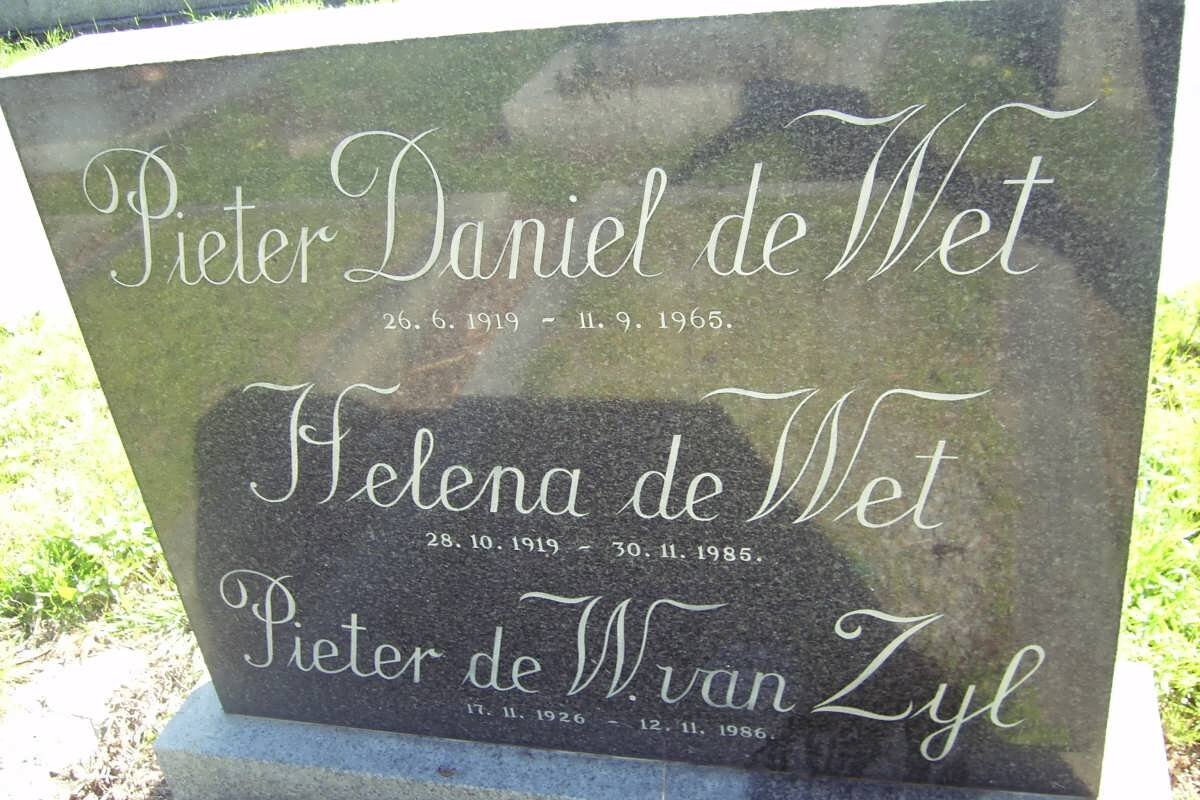 Pieter Daniel de Wet
26. 6. 1919 - 11. 9. 1965.
Helena de Wet
28. 10. 1919 - 30. 11. 1985.
Pieter de W. van Zyl
17. 11. 1926 - 12. 11. 1986.